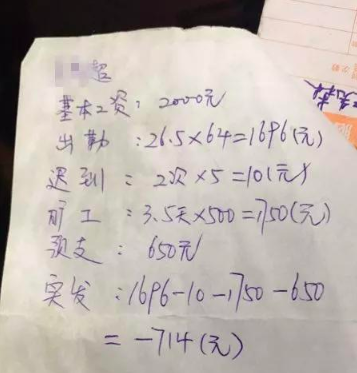 超
基本工资：2000元
出勤：26.5×64=1696(元)
迟到：2次×5=10(元)
旷工：3.5天×500=1750(元)
预支：650元
实发：1696-10-1750-650
=-714(元)